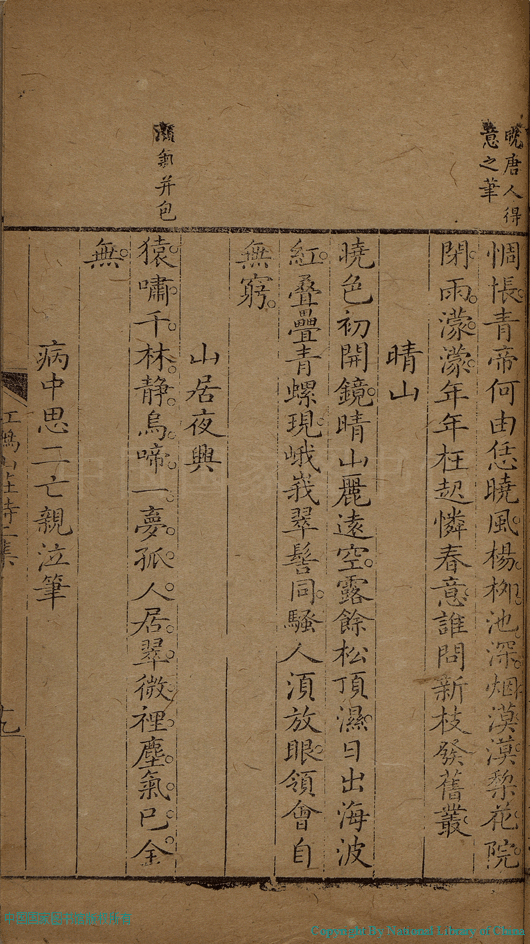 晩唐人得
意之筆
惆悵青帝何由恁曉風楊柳池深烟漠漠梨花院
閉雨濛濛年年枉起憐春意誰問新枝發舊叢
晴山
曉色初開鏡晴山麗遠空露餘松頂濕日出海波
紅疊疊青螺現峨峩翠髻同騷人須放眼領會自
無窮
氣并包
山居夜興
猿嘯千林静烏啼一夢孤人居翠微裡塵氣已全
無
病中思二亡親泣筆
Copyright By National Library of China